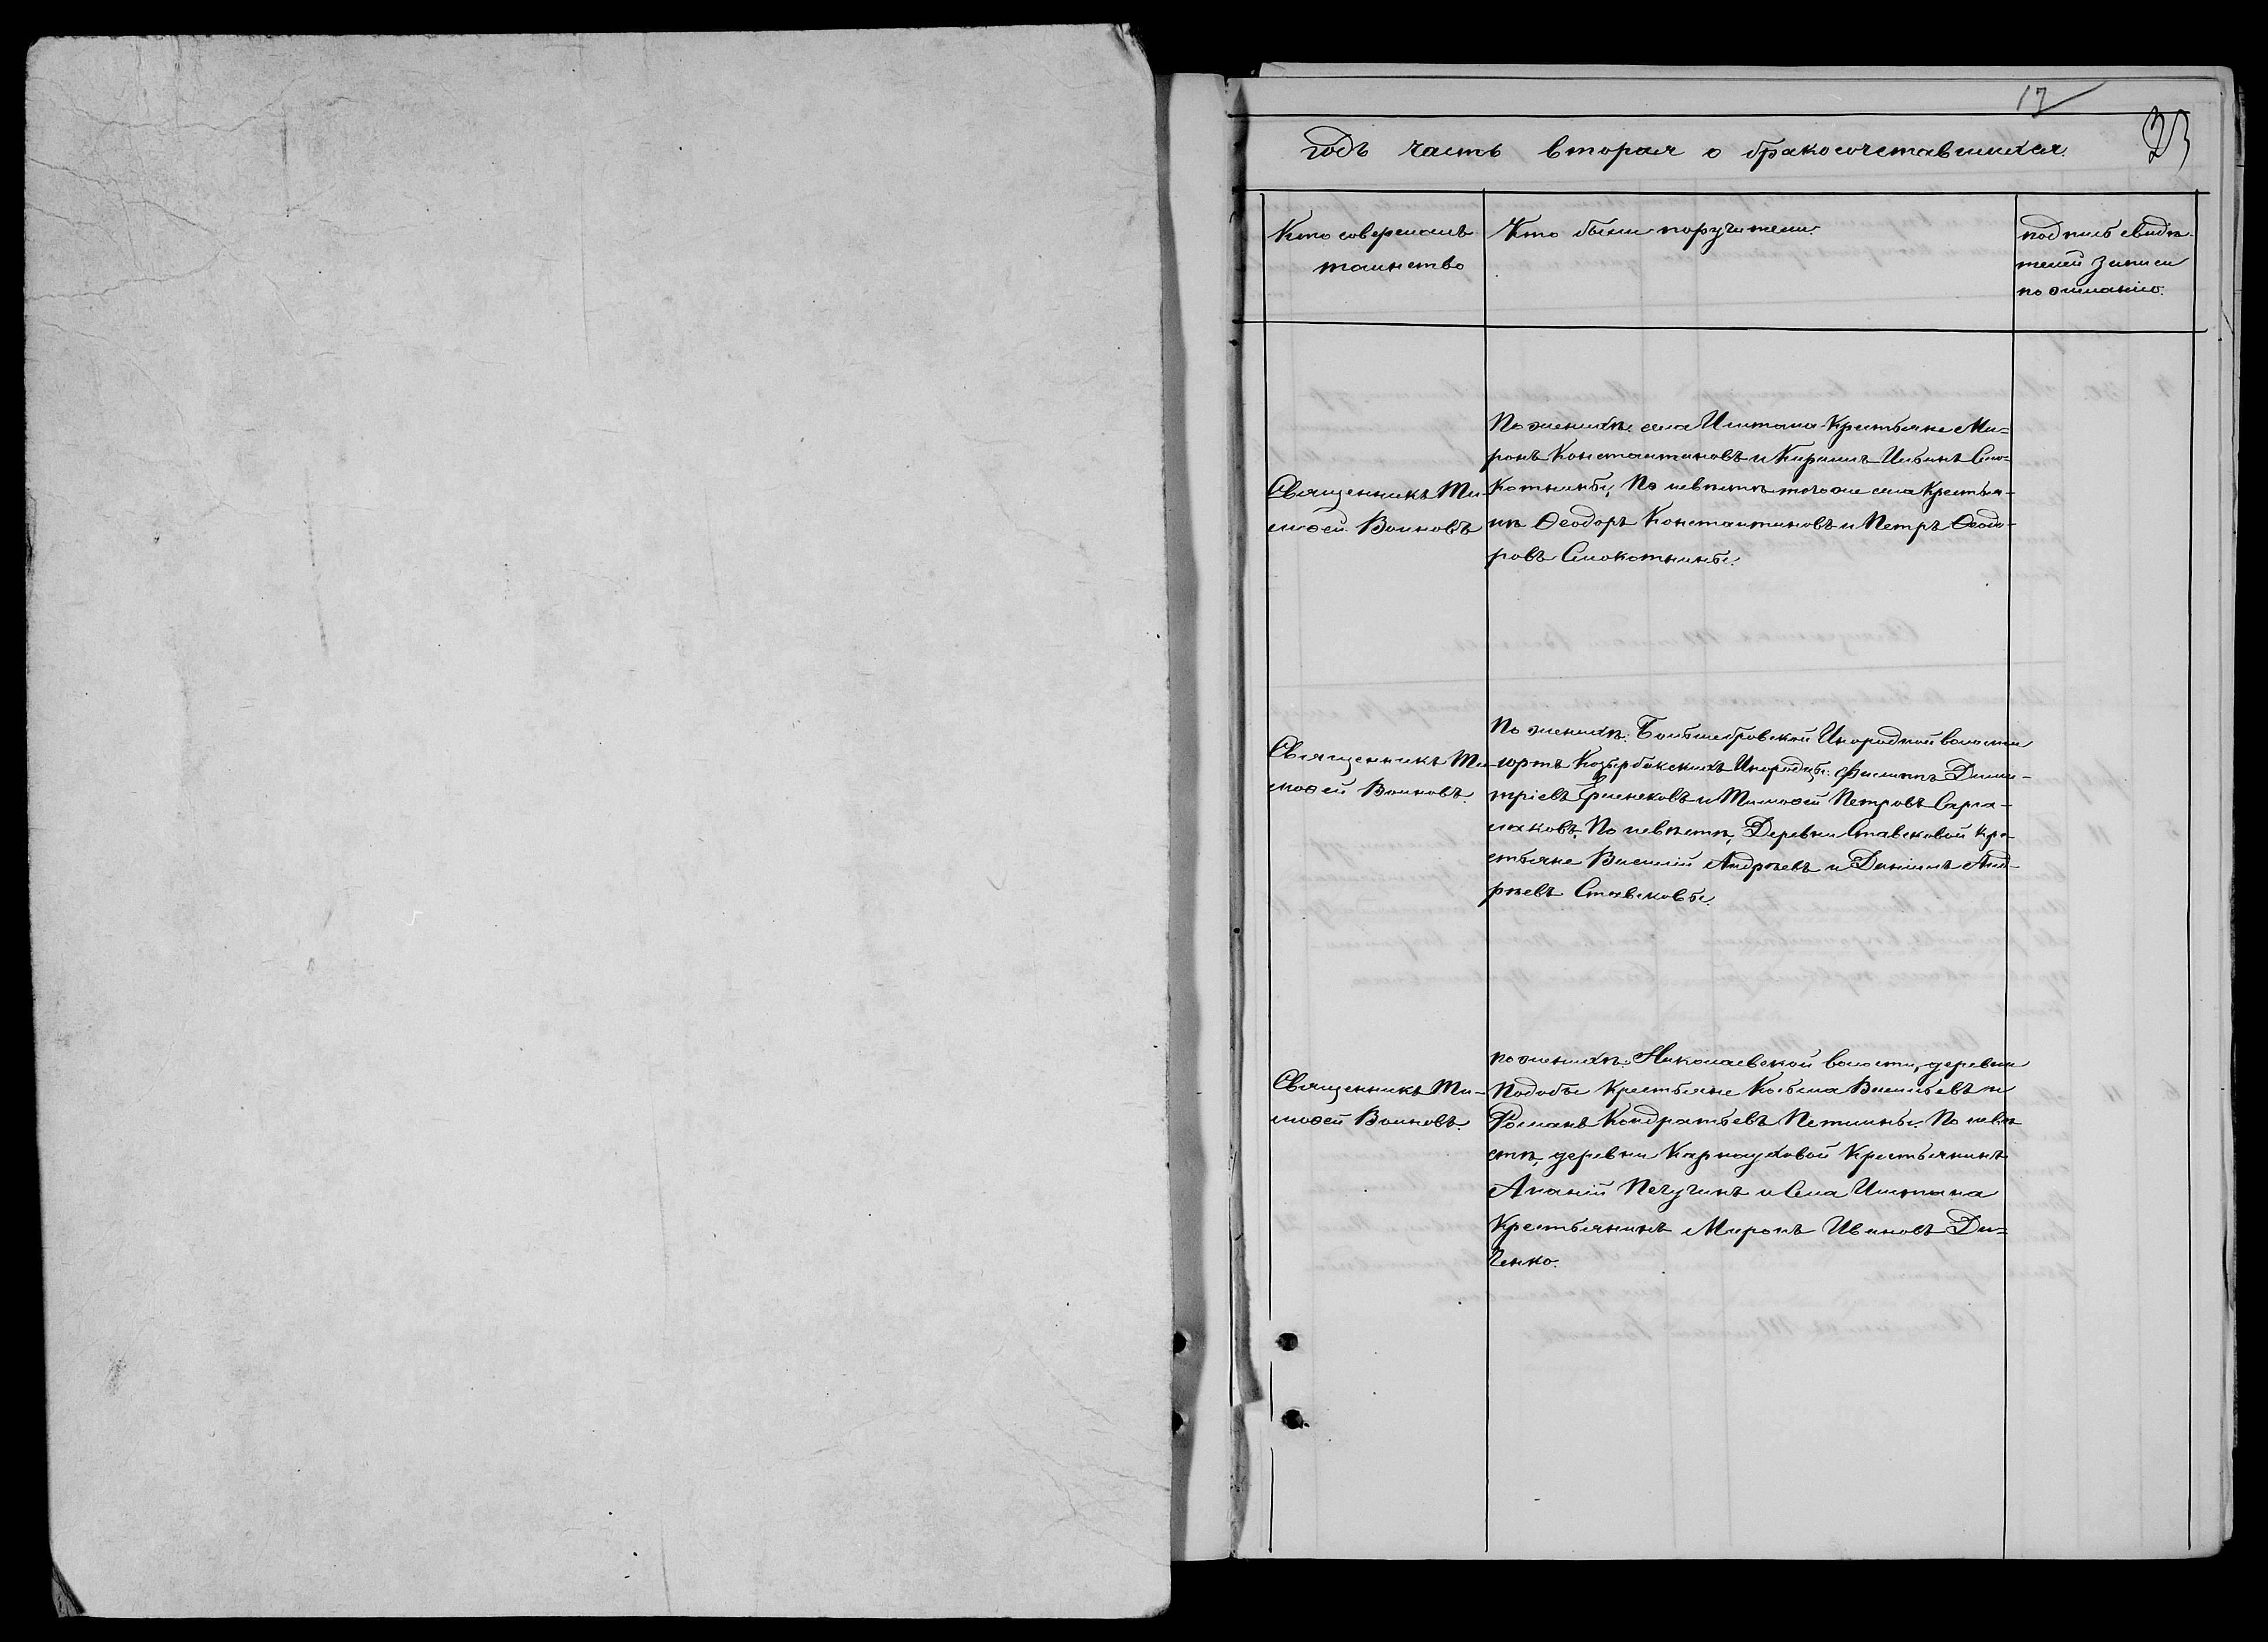 17
23
годъ часть вторая о бракосочетавшихся.
Кто совершалъ
таинство
Кто были поручители.
подпись свидѣ-
телей записи
по желанію.
Священникъ Ти-
моѳей Воиновъ
По женихѣ: села Иштана Крестьяне Ми=
ронъ Константиновъ и Кирилъ Ильинъ Смо-
котнины; По невѣстѣ того же села Крестья-
нѣ Ѳеодоръ Константиновъ и Петръ Ѳеодо-
ровъ Смокотнины.
Священникъ Ти-
моѳей Воиновъ.
По женихѣ: Инородной волости
юртъ Инородцы: Филиппъ Дими-
тріевъ и Тимоѳей Петровъ
По невѣстѣ, Деревни Ставсковой Кре-
стьяне Василій Андреевъ и Даніилъ Анд-
реевъ Ставсковы.
Священникъ Ти-
моѳей Воиновъ.
по женихѣ: Николаевской волости, деревни
Подобы Крестьяне Козьма Васильевъ и
Романъ Кондратьевъ Петлины. По невѣ-
стѣ, деревни Карнауховой Крестьянинъ
Ананій Печугинъ и Села Иштана
Крестьянинъ Миронъ Ивановъ Ди=
ченко.